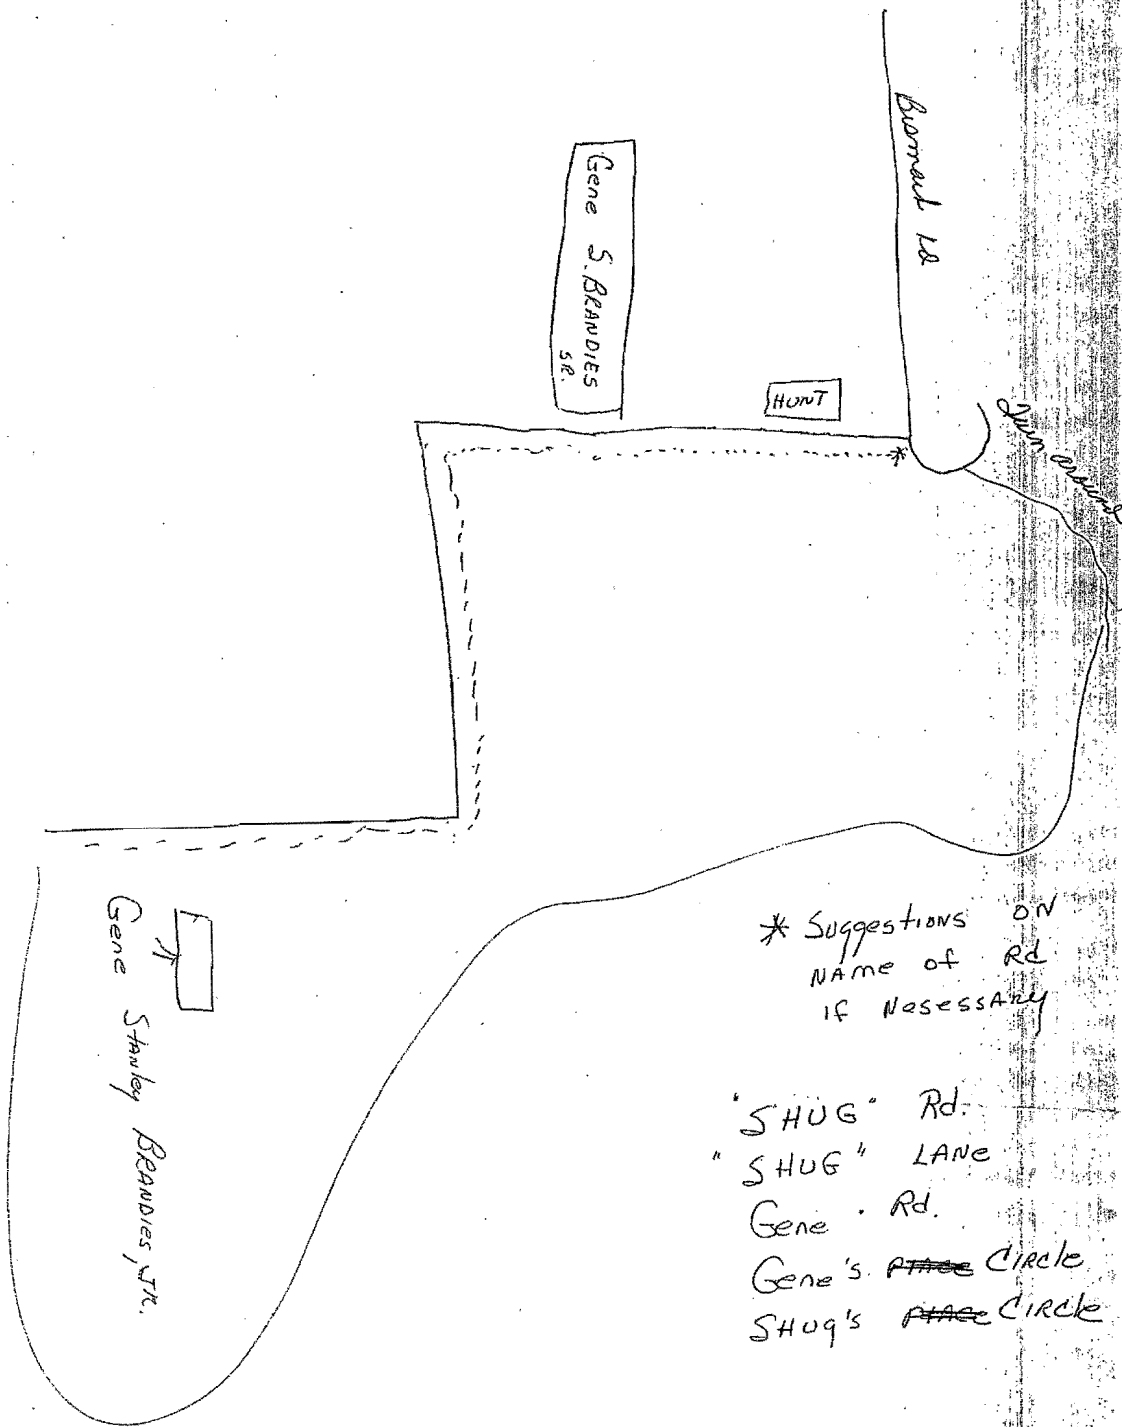 Gene S. BRANDIES
SR.
HUNT
Turn around
Gene Stanley BRANDIES, JR.
* Suggestions ON
NAMe of Rd
IF NesessARy
"SHUG" Rd.
"SHUG" LANe
Gene Rd.
Gene's PlAce CIRcle
SHug's PlAce CIRcle